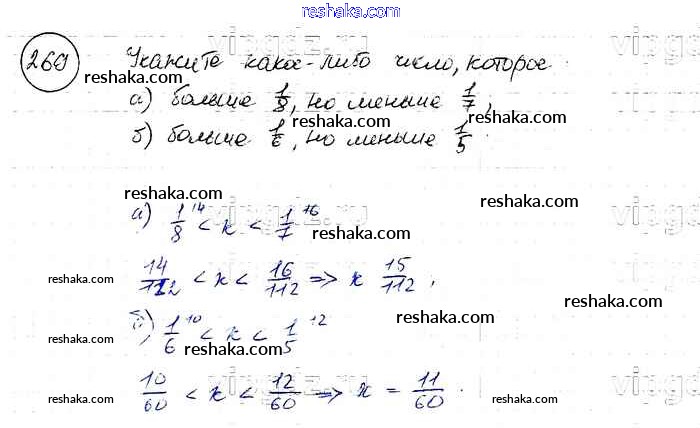 reshaka.com
260 Укажите какое-либо число, которое:
reshaka.com
а) больше 1/8, но меньше 1/7;
reshaka.com
б) больше 1/6, но меньше 1/5.
reshaka.com
reshaka.com
а) 1/8^14 < x < 1/7^16
reshaka.com
14/112 < x < 16/112 => x 15/112;
reshaka.com
б) 1/6^10 < x < 1/5^12
reshaka.com
10/60 < x < 12/60 => x = 11/60.
reshaka.com